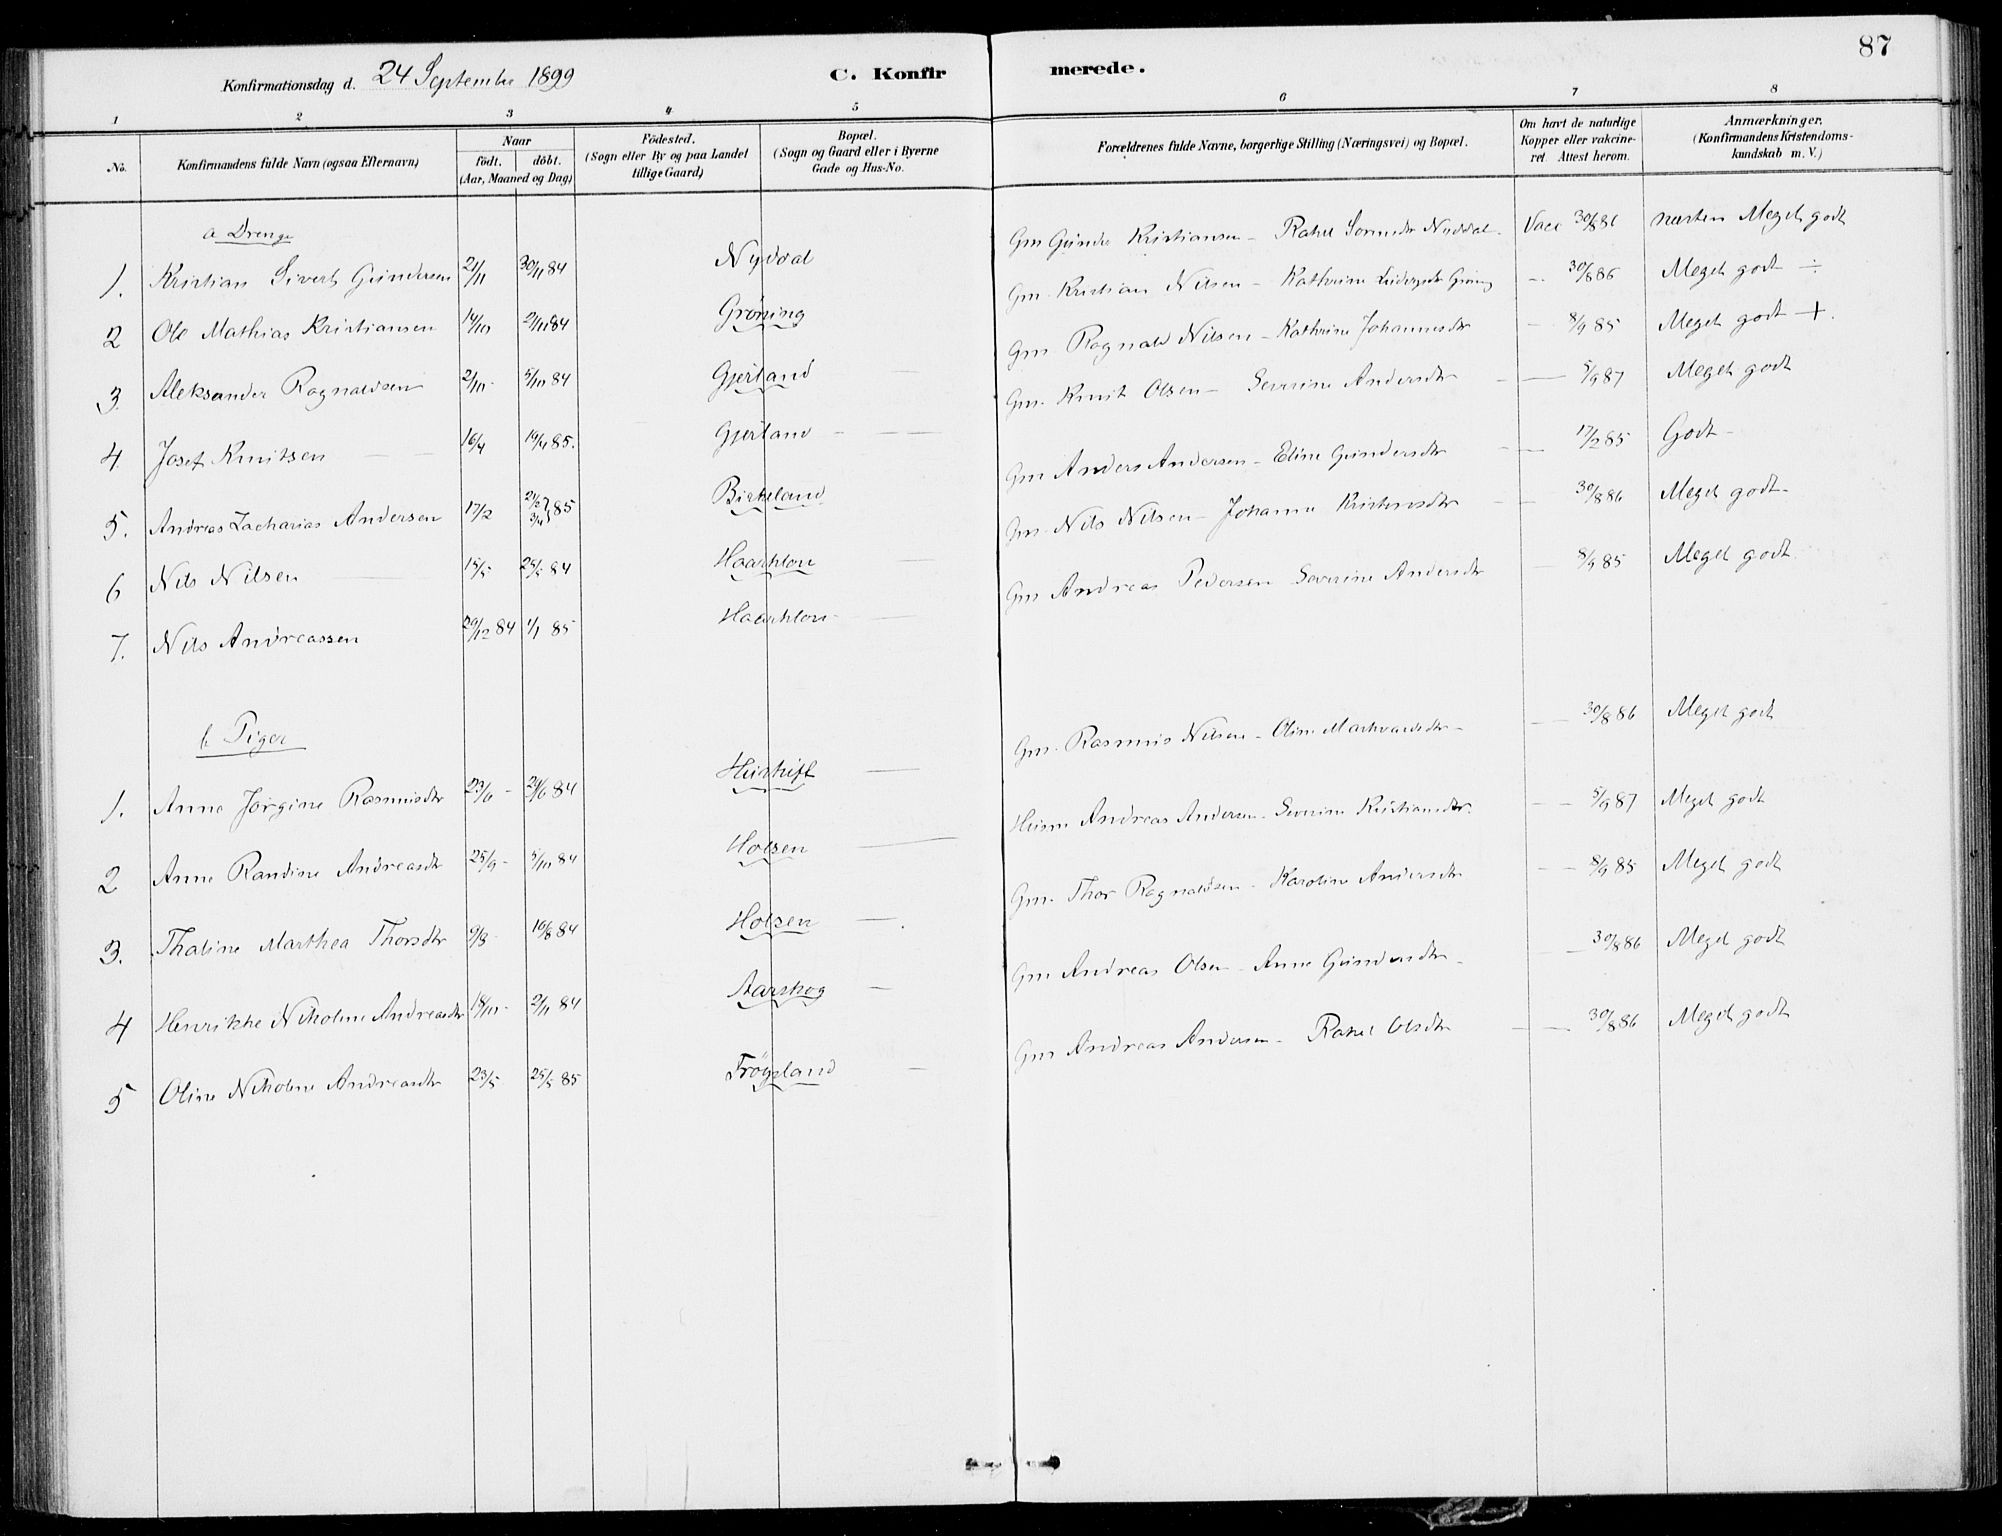 87
Konfirmationsdag d. 24 September 1899 C. Konfir merede.
1 2 3 4 5 6 7 8
No. Konfirmandens fulde Navn (ogsaa Efternavn) Naar födt. döbt. (Aar, Maaned og Dag) Födested. (Sogn eller By og paa Landet tillige Gaard) Bopæl. (Sogn og Gaard eller i Byerne Gade og Hus-No. Forældrenes fulde Navne, borgerlige Stilling (Næringsvei) og Bopæl. Om havt de naturlige Kopper eller vakcineret. Attest herom. Anmærkninger. (Konfirmandens Kristendomskundskab m. V.)
a Drenge
1. Kristian Sivert Gundersen 21/11 30/11 84 Nydal Gm Gunder Kristiansen - Rahel Nydal. Vacc 30/8 86 næsten Meget godt
2 Ole Mathias Kristiansen 14/10 2/11 84 Gröning Gm. Kristian Nilsen - Kathrine Gröning - 30/8 86 Meget godt ÷
3. Aleksander Ragnaldsen 2/10 - 5/10 84 Gjerland Gm. Ragnald Nilsen - Kathrine Johannesdtr - 8/9 85 Meget godt +.
4. Josef Knutsen 16/4 19/4 85. Gjerland Gm. Knut Olsen - Severine Andersdtr - 5/9 87 Meget godt
5. Andreas Zacharias Andersen 17/2 21/2 3/4 } 85 Birkeland Gm Anders Andersen - Eline Gundersdtr - 17/2 85 Godt -
6 Nils Nilsen 15/5 25/5 84 Haarklou Gm. Nils Nilsen - Johanne Kristensdtr - 30/8 86 Meget godt -
7. Nils Andreassen 29/12 84 1/1 85 Haarklou - Gm Andreas Pedersen Severine Andersdtr - 8/9 85 Meget godt.
b Piger
1. Anne Jörgine Rasmusdtr 23/6 - 29/6 84 Huskift Gm. Rasmus Nilsen - Oline Markvardsdtr - 30/8 86 Meget godt
2 Anne Randine Andreasdtr 25/9 - 5/10 84 Holsen Husm Andreas Andersen - Severine Kristiansdtr. - 5/9 87 Meget godt
3. Thaline Marthea Thorsdtr 9/8 - 10/8 84 Holsen Gm. Thor Ragnaldsen - Karoline Andersdtr - 8/9 85 Meget godt
4 Henrikke Nikoline Andreasdtr 18/10 - 2/11 84 Aarskog Gm Andreas Olsen - Anne Gundersdtr - 30/8 86 Meget godt
5 Oline Nikoline Andreasdtr 23/5 25/5 85 Tröysland Gm Andreas Andersen - Rahel Olsdtr - 30/8 86 Meget godt